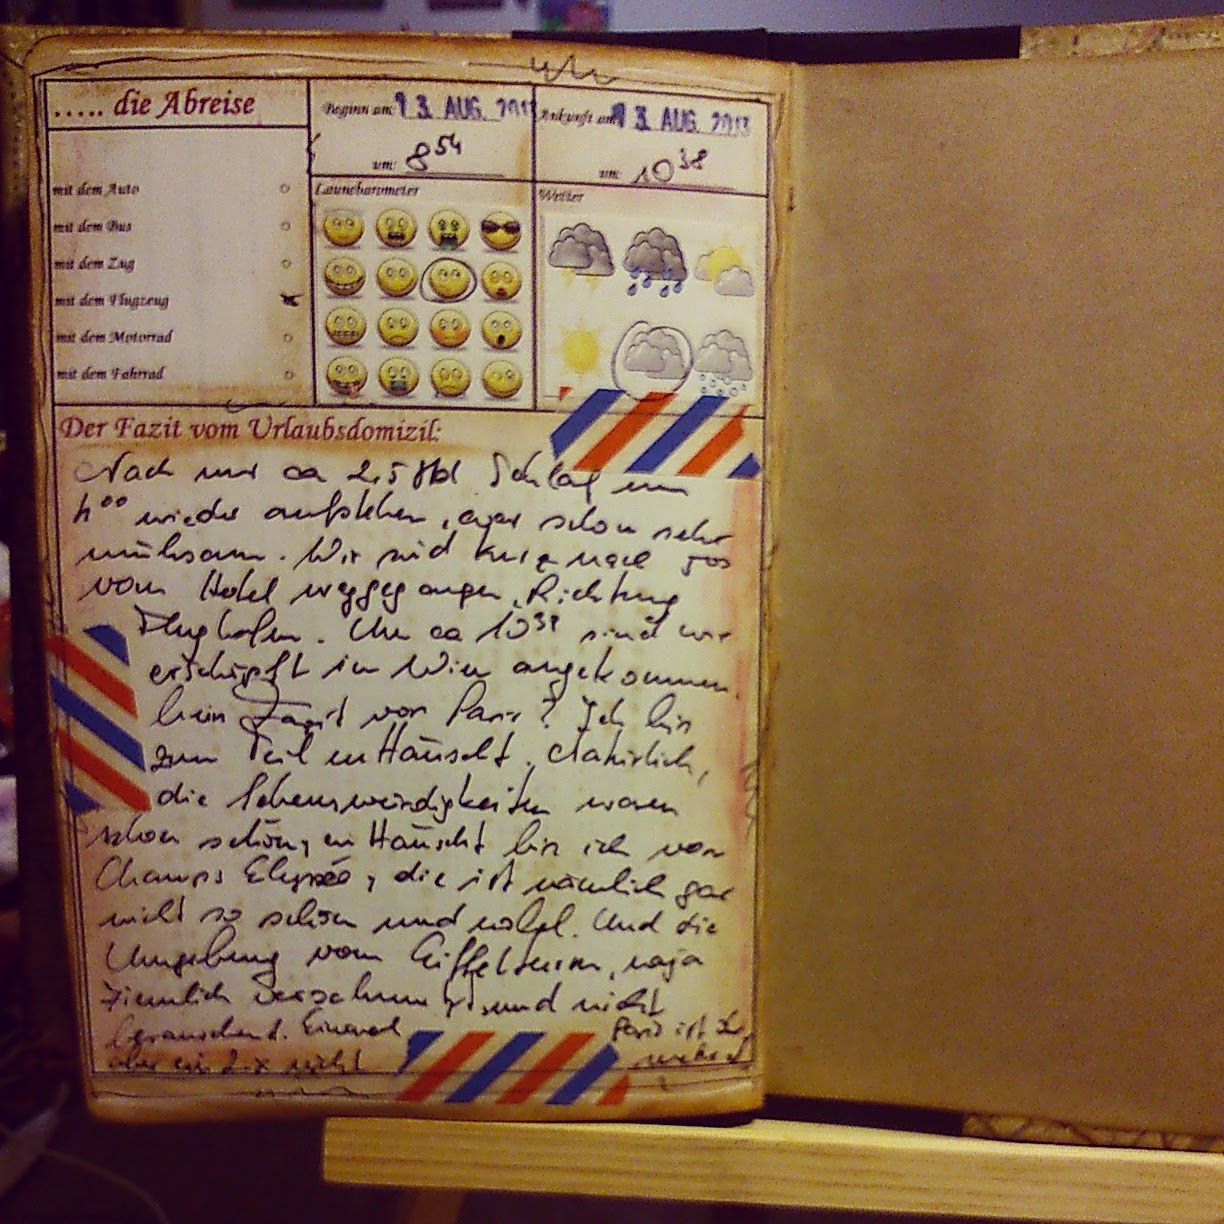 ..... die Abreise
Beginn am: 13. AUG. 2013
um: 8 54
Ankunft am: 13. AUG. 2013
um: 10 38
mit dem Auto
mit dem Bus
mit dem Zug
mit dem Flugzeug
mit dem Motorrad
mit dem Fahrrad
Launebarometer
Wetter
Der Fazit vom Urlaubsdomizil:
Nach nur ca 2,5 Std Schlaf um
4 00 wieder aufstehen, war schon sehr
mühsam. Wir sind kurz nach 5 05
vom Hotel weggegangen, Richtung
Flughafen. Um ca 10 38 sind wir
erschöpft in Wien angekommen.
Mein Fazit von Paris? Ich bin
zum Teil enttäuscht. Natürlich,
die Sehenswürdigkeiten waren
schon schön, enttäuscht bin ich von
Champs Elysée, die ist nämlich gar
nicht so schön und nobel. Und die
Umgebung vom Eiffelturm, naja
ziemlich und nicht
berauschend. Einmal Paris ist
aber ein 2.x nicht